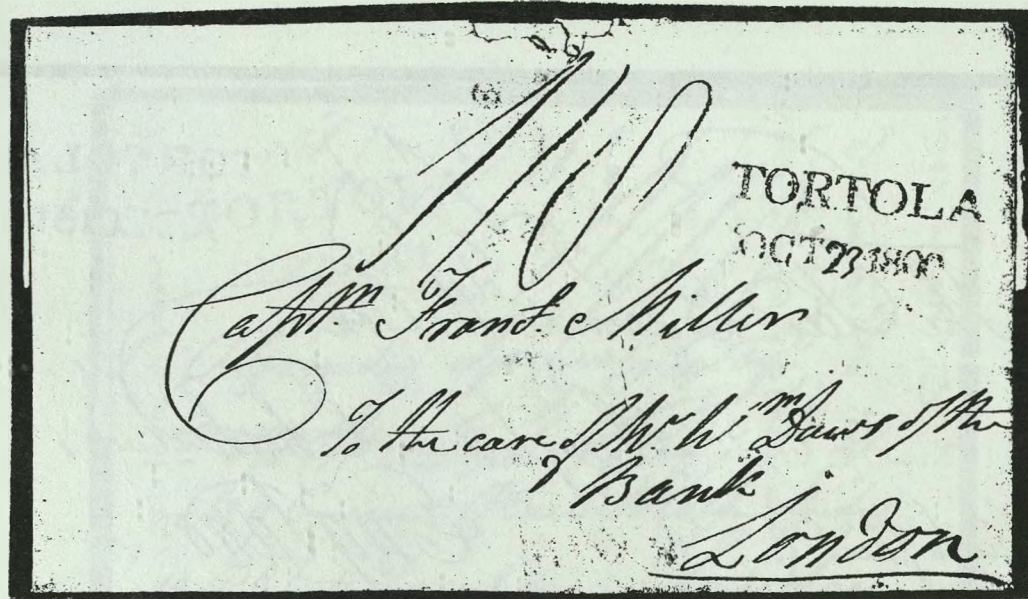 TORTOLA
OCT 23 1800
Captn. Frans. Miller
To the care of Mr. Wm Daws of the
Bank
London